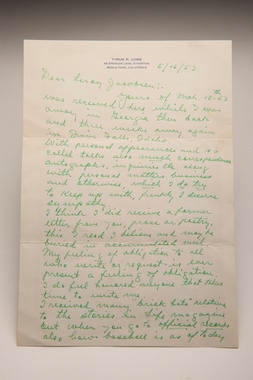 TYRUS R. COBB
MENLO PARK, CALIFORNIA
5/16/53
Dear Leroy Jacobsen:
Yours of Mar. 18-53
was received here while I was
away in Georgia then back
and three weeks away again
in Twin Falls, Idaho.
With personal appearances and so
called talks also much correspondence
autographs, in numbers, along
with personal matters business
and otherwise, which I do try
to keep up with, frankly I deserve
sympathy.
I think I did receive a former
letter from you, prose or poetry,
this I read I believe and may be
buried in accumulated mail.
My feeling of obligation to all
who write or request is ever
present a feeling of obligation.
I do feel honored anyone that takes
time to write me.
I received many brick bats relative
to the stories in Life magazine
but when you go to official records
also how baseball is as of today,